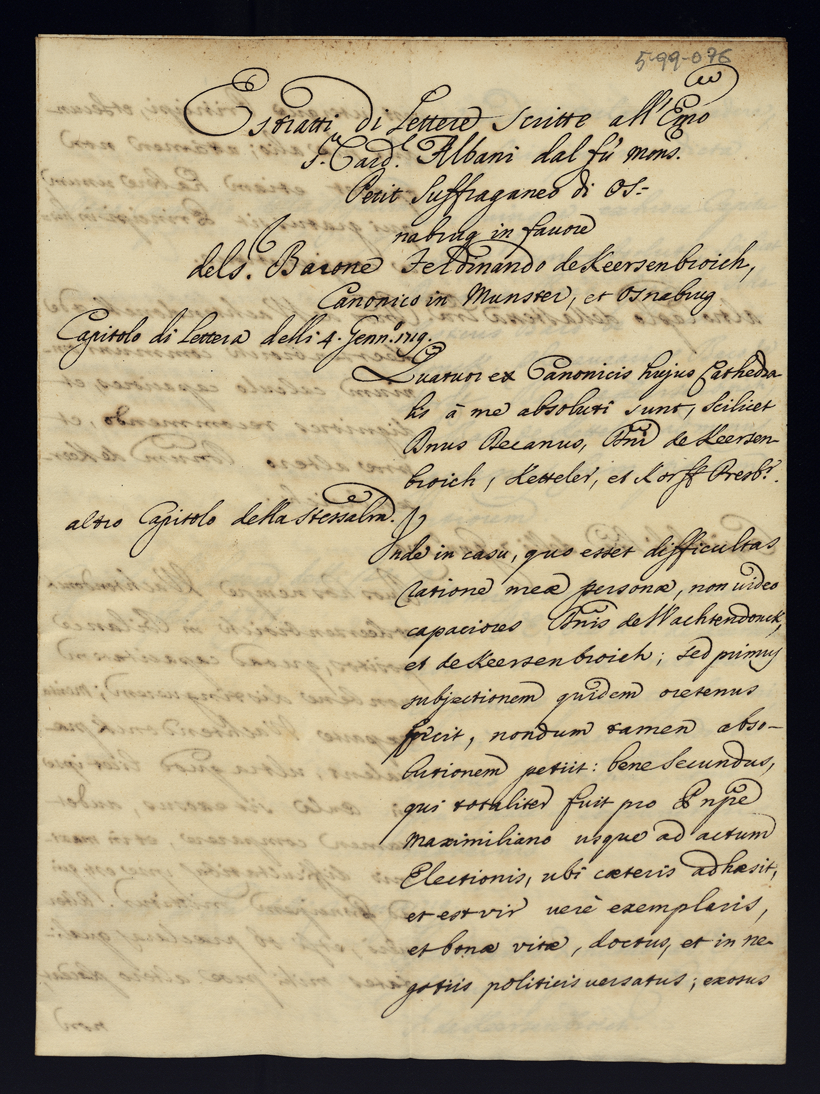 5-99-076
Estratti di Lettere scritte all' Emo
Sr. Card.le Albani dal fù Mons.
Petit Suffraganeo di Os=
nabrug in favore
del S. Barone Ferdinando de Keersenbroich,
Canonico in Munster, et Osnabrug
Capitolo di Lettera delli 4. Genn.o 1719.
Quatuor ex Canonicis hujus Cathedra-
lis â me absoluti sunt, scilicet
Dnus Decanus, Dni de Keersen-
broich, Ketteler, et Korff Presb.r.
altro Capitolo della stessa lra.
Unde in casu, quo esset difficultas
ratione meæ personæ, non video
capaciores Dnis de Wachtendonck,
et de Keersenbroich; sed primus
subjectionem quidem oretenus
fecit, nondum tamen abso-
lutionem petiit: bene secundus,
qui totaliter fuit pro Pnpe
Maximiliano usque ad actum
Electionis, ubi cæteris adhæsit,
et est vir verè exemplaris,
et bonæ vitæ, doctus, et in ne-
gotiis politicis versatus; exosus
non